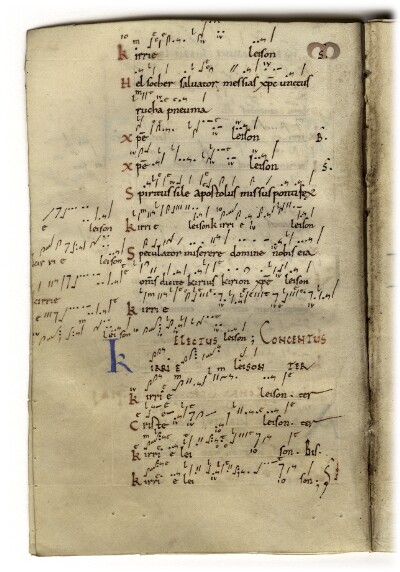 Kirrie leison S.
Hel sother salvator messias xpe unctus
rucha pneuma
Xpe leison B.
Xpe leison S.
Spiritus file apostolus missus pontifex
Kirri e leison kirri e leison
Speculator miserere domine nobis eia
oms dicite kirius kirion xpe leison
Kirri e
e leison
leison
kirrie
leison
ELECTUS leison; CONCENTUS
KIRRI E LEISON TER
Kirri e leison. ter
Criste leison. ter
Kirri e lei son. Bis.
Kirri e lei son. S